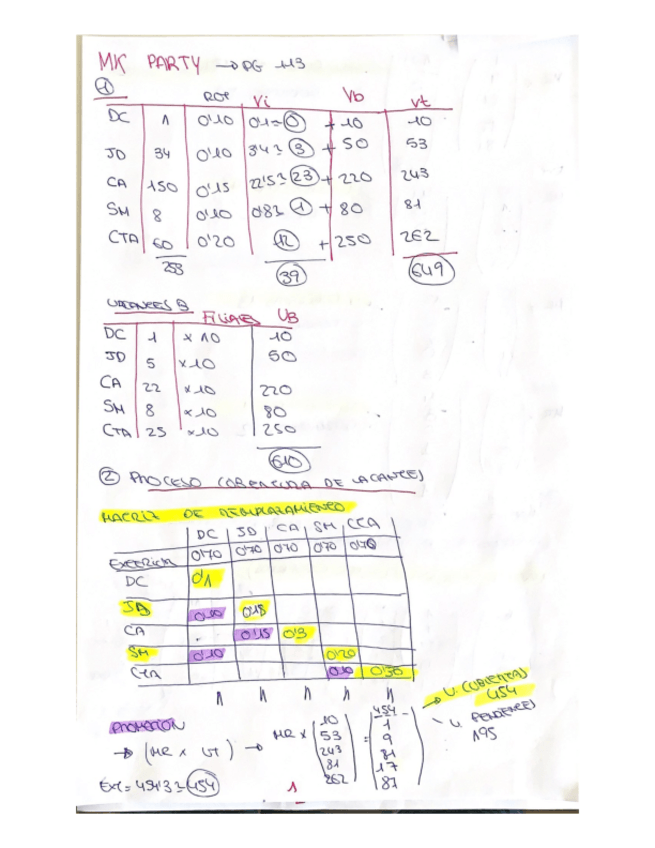 MK PARTY → PG 113
①
ROT Vi Vb Vt
DC 1 0'10 0'1≈0 + 10 10
JD 34 0'10 3'4≈3 + 50 53
CA 150 0'15 22'5≈23 + 220 243
SM 8 0'10 0'8≈1 + 80 81
CTA 60 0'20 12 + 250 262
253 39 649
VACANTES B
FILIALES VB
DC 1 x 10 10
JD 5 x 10 50
CA 22 x 10 220
SM 8 x 10 80
CTA 25 x 10 250
610
② PROCESO COBERTURA DE VACANTES
MATRIZ DE REMPLAZAMIENTO
DC JD CA SM CTA
EXTERIOR 0'70 0'70 0'70 0'70 0'40
DC 0'1
JD 0'10 0'15
CA . 0'15 0'3
SM 0'10 0'20
CTA 0'10 0'50
1 1 1 1 1
PROMOCION
→ (MR x VT) → MR x
10
53
243
81
262
=
454
1
9
81
17
87
→ V. CUBIERTAS
454
V PENDIENTES
195
EXT = 454'3 ≈ 454
1